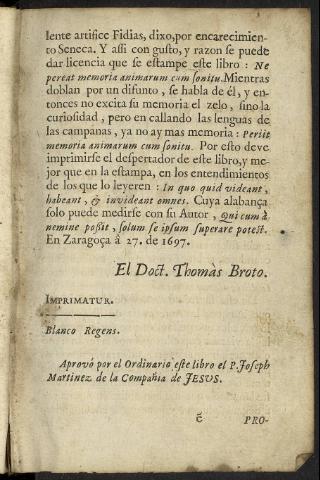 lente artifice Fidias, dixo, por encarecimien-
to Seneca. Y assi con gusto, y razon se puede
dar licencia que se estampe este libro: Ne
pereat memoria animarum cum sonitu. Mientras
doblan por un difunto, se habla de él, y en-
tonces no excita su memoria el zelo, sino la
curiosidad, pero en callando las lenguas de
las campanas, ya no ay mas memoria: Periit
memoria animarum cum sonitu. Por esto deve
imprimirse el despertador de este libro, y me-
jor que en la estampa, en los entendimientos
de los que lo leyeren: In quo quid videant,
habeant, & invideant omnes. Cuya alabança
solo puede medirse con su Autor, Qui cum à
nemine possit, solum se ipsum superare potest.
En Zaragoça à 27. de 1697.
El Doct. Thomàs Broto.
IMPRIMATUR.
Blanco Regens.
Aprovò por el Ordinario este libro el P. Joseph
Martinez de la Compañia de JESVS.
PRO-